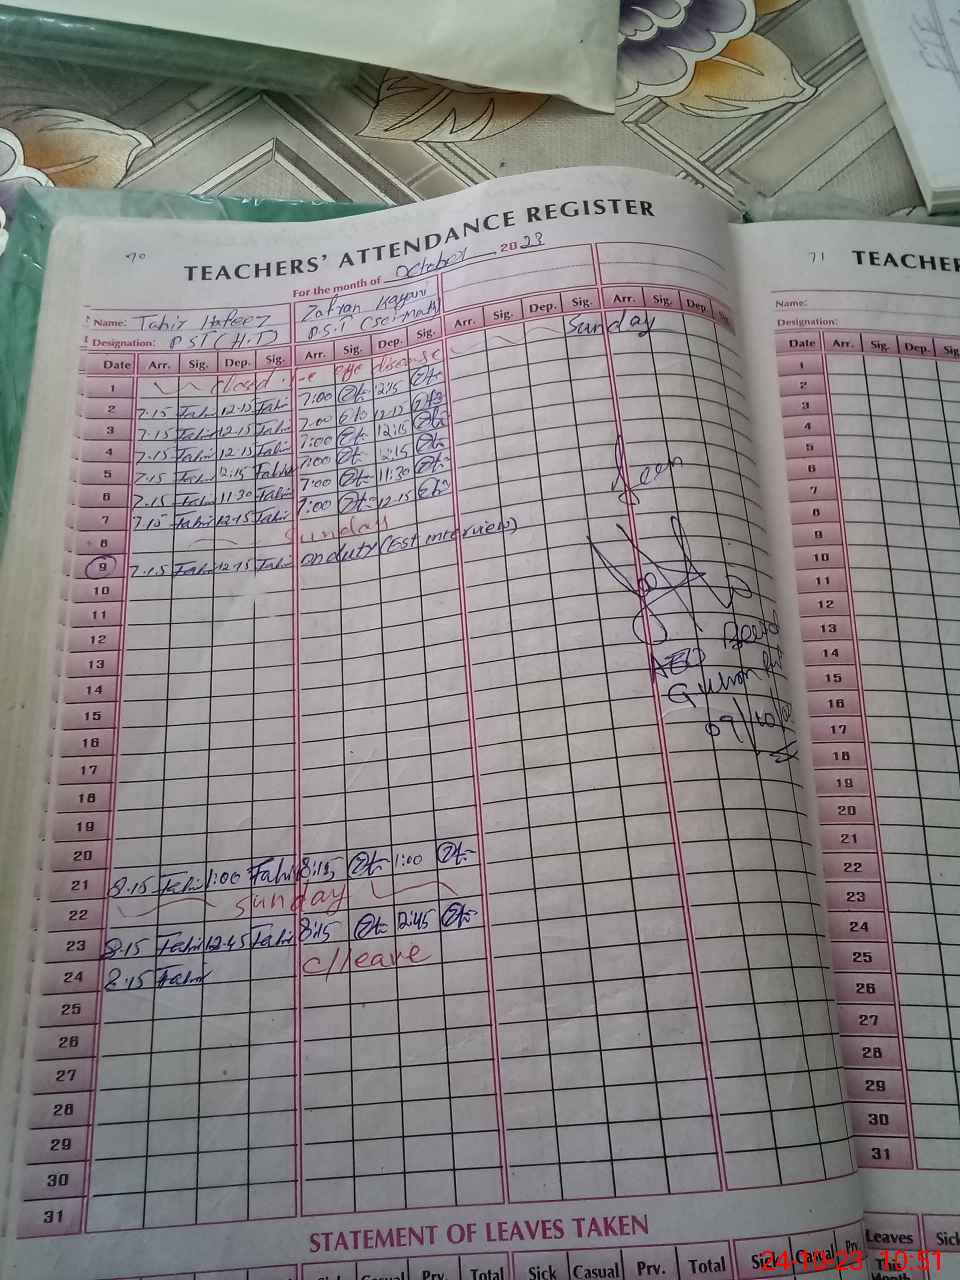 70
TEACHERS' ATTENDANCE REGISTER
For the month of October 2023
Name: Tahir Hafeez Zafran Kayani
Designation: P.ST (H.T) P.S.T (Sci-math)
Date Arr. Sig. Dep. Sig. Arr. Sig. Dep. Sig. Arr. Sig. Dep. Sig. Arr. Sig. Dep. Sig.
1 closed eye disease Sunday
2 7.15 Tahir 12.15 Tahir 7:00 12:15
3 7.15 Tahir 12.15 Tahir 7:00 12.15
4 7.15 Tahir 12.15 Tahir 7:00 12:15
5 7.15 Tahir 12:15 Tahir 7:00 12:15
6 7.15 Tahir 11.30 Tahir 7:00 11:30
7 7.15 Tahir 12.15 Tahir 7:00 12.15
8 Sunday
9 7.15 Tahir 12.15 Tahir on duty (Est interview)
10
11
12
13
14
15
16
17
18
19
20
21 8.15 Tahir 1:00 Tahir 8:15 1:00
22 Sunday
23 8.15 Tahir 12.45 Tahir 8:15 12:45
24 8.15 Tahir c/leave
25
26
27
28
29
30
31
Seen
AEO
STATEMENT OF LEAVES TAKEN
Casual Prv. Total Sick Casual Prv. Total Sick Casual Prv.
71
TEACHER
Name:
Designation:
Date Arr. Sig. Dep. Sig.
1
2
3
4
5
6
7
8
9
10
11
12
13
14
15
16
17
18
19
20
21
22
23
24
25
26
27
28
29
30
31
Leaves Sick
This
24-10-23 10:51